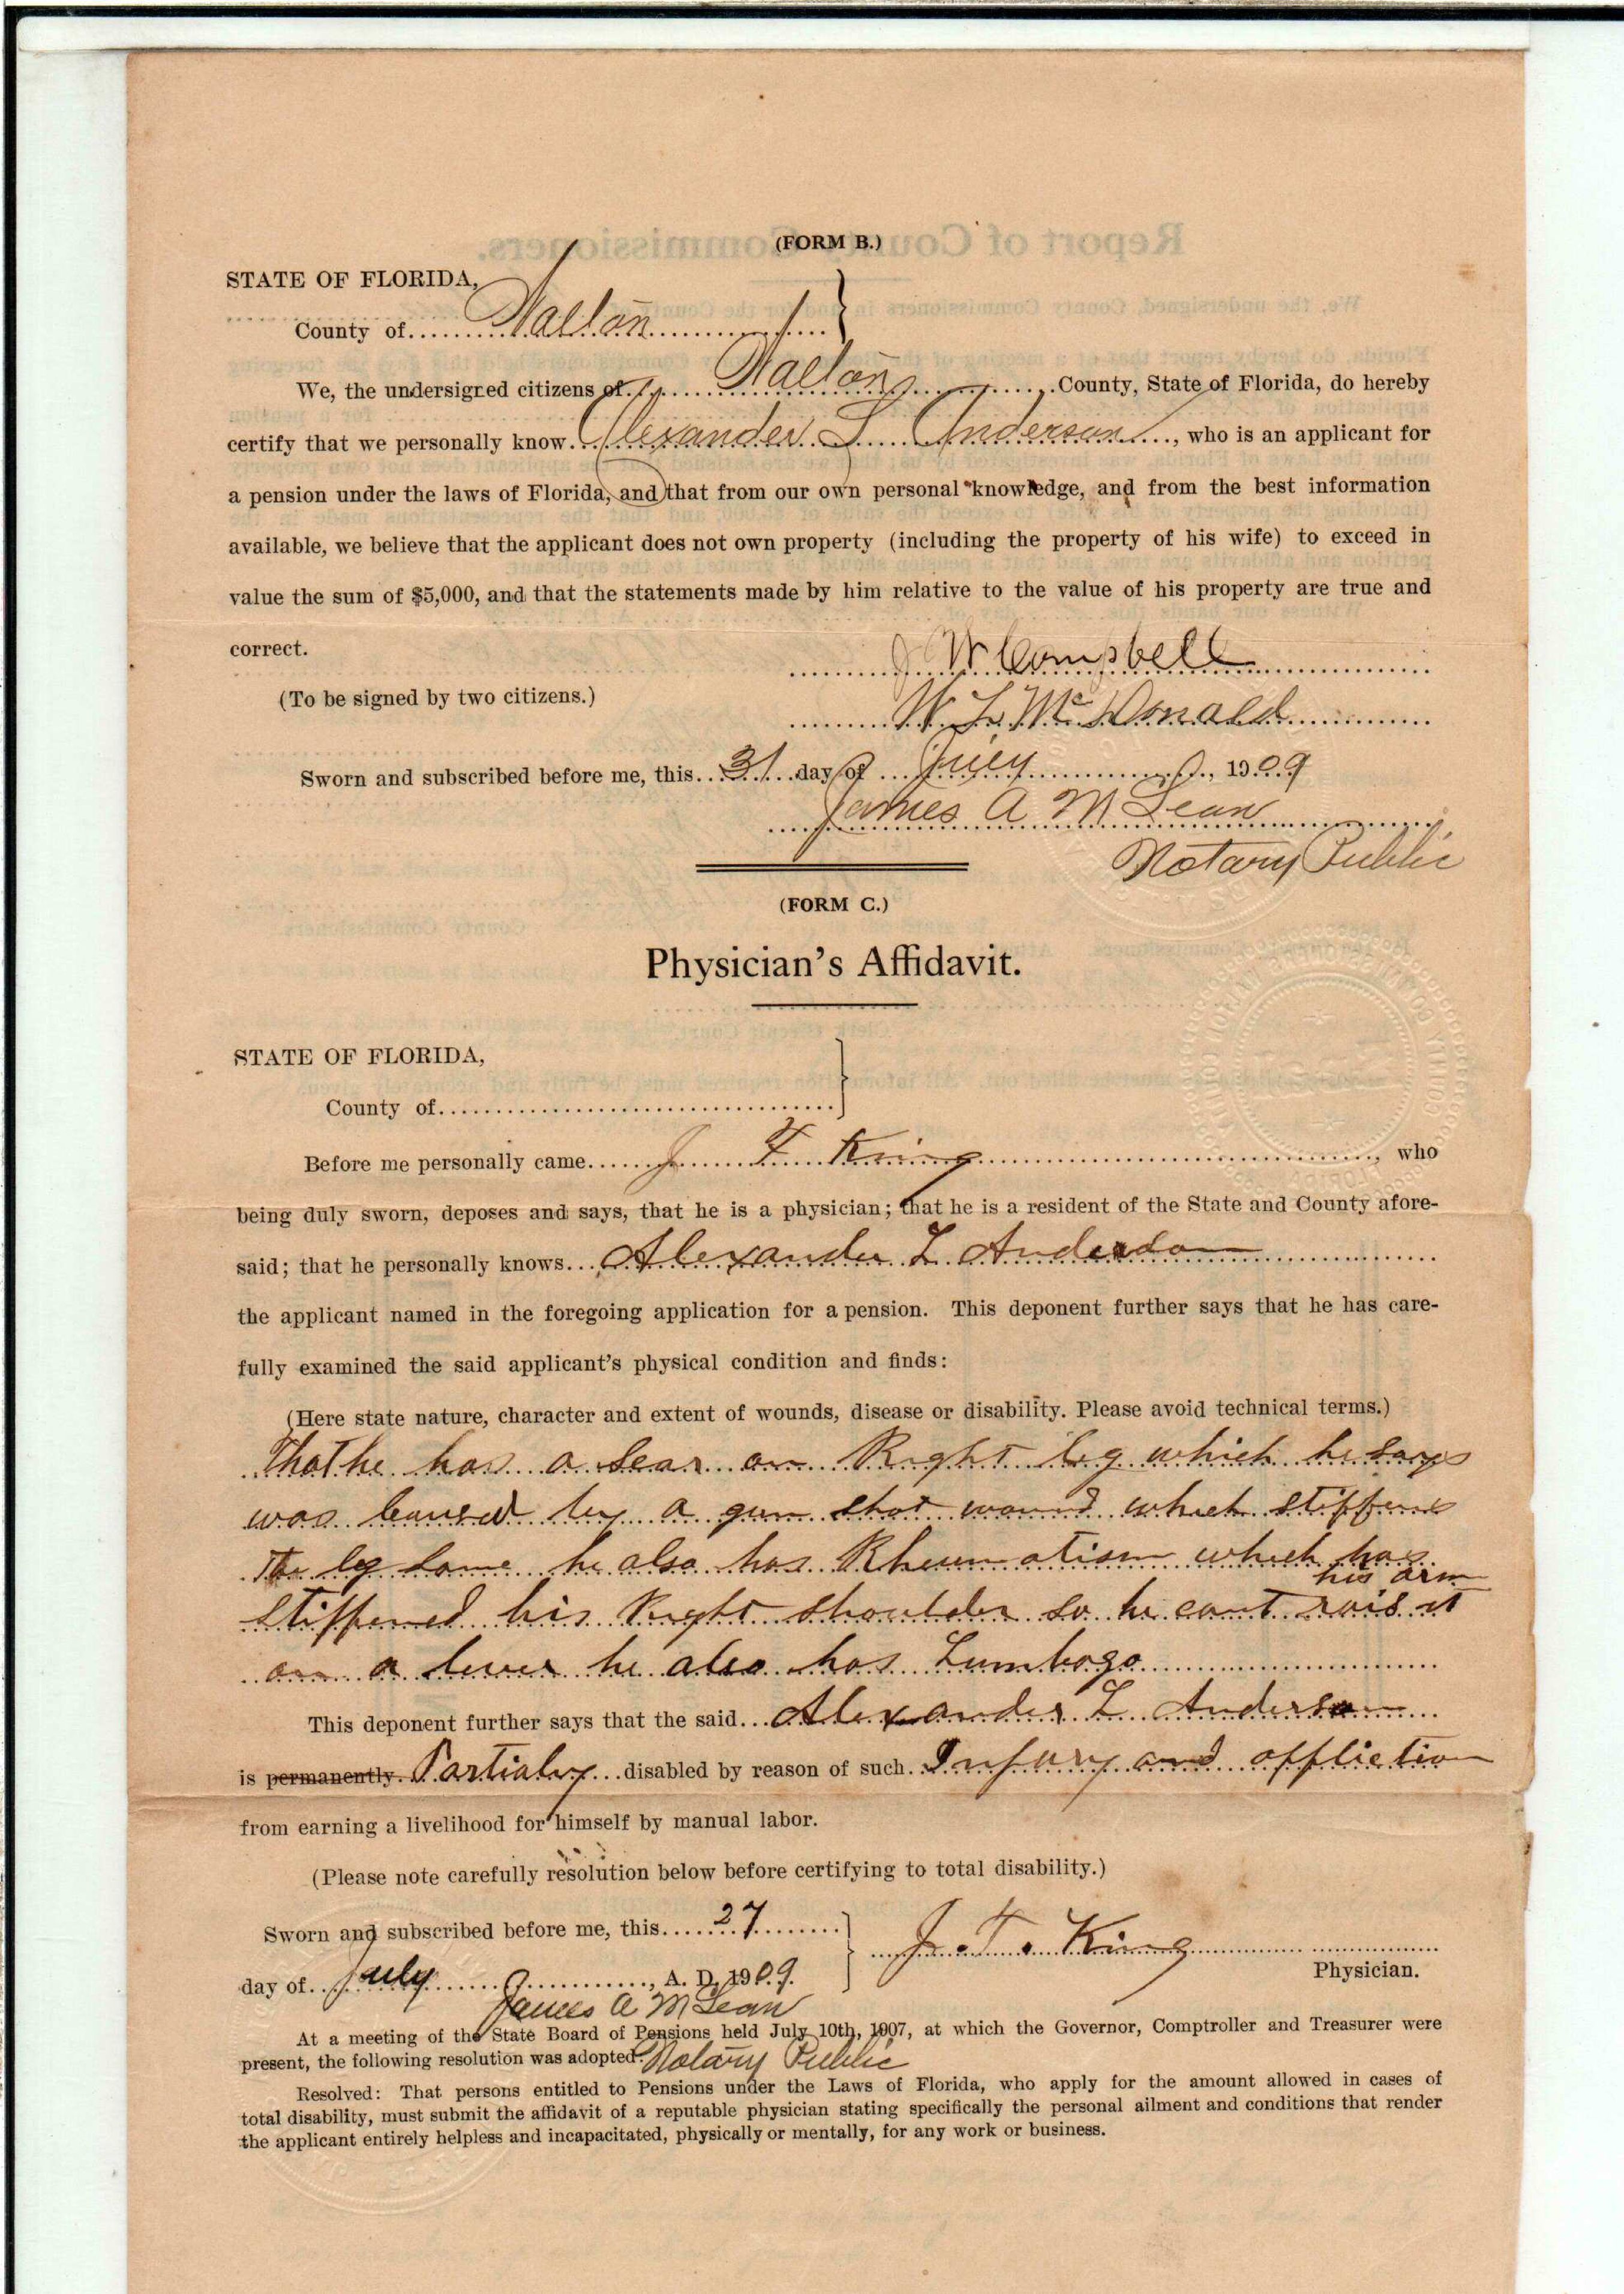 (FORM B.)
STATE OF FLORIDA,
County of Walton
We, the undersigned citizens of Walton County, State of Florida, do hereby
certify that we personally know Alexander L Anderson, who is an applicant for
a pension under the laws of Florida, and that from our own personal knowledge, and from the best information
available, we believe that the applicant does not own property (including the property of his wife) to exceed in
value the sum of $5,000, and that the statements made by him relative to the value of his property are true and
correct.
J W Campbell
(To be signed by two citizens.)
W L McDonald
Sworn and subscribed before me, this 31 day of July, 1909
James A McLean
Notary Public
(FORM C.)
Physician's Affidavit.
STATE OF FLORIDA,
County of
Before me personally came J T King, who
being duly sworn, deposes and says, that he is a physician; that he is a resident of the State and County afore-
said; that he personally knows Alexander L Anderson
the applicant named in the foregoing application for a pension. This deponent further says that he has care-
fully examined the said applicant's physical condition and finds:
(Here state nature, character and extent of wounds, disease or disability. Please avoid technical terms.)
That he has a scar on Right leg which he says
was caused by a gun shot wound which stiffens
the leg some he also has Rheumatism which has
his arm
stiffened his Right shoulder so he cant rais it
on a lever he also has Lumbago
This deponent further says that the said Alexander L Anderson
is permanently Partialy disabled by reason of such Injury and affliction
from earning a livelihood for himself by manual labor.
(Please note carefully resolution below before certifying to total disability.)
Sworn and subscribed before me, this 27
J. T. King
day of July, A. D. 1909.
Physician.
James A McLean
At a meeting of the State Board of Pensions held July 10th, 1907, at which the Governor, Comptroller and Treasurer were
present, the following resolution was adopted:
Notary Public
Resolved: That persons entitled to Pensions under the Laws of Florida, who apply for the amount allowed in cases of
total disability, must submit the affidavit of a reputable physician stating specifically the personal ailment and conditions that render
the applicant entirely helpless and incapacitated, physically or mentally, for any work or business.